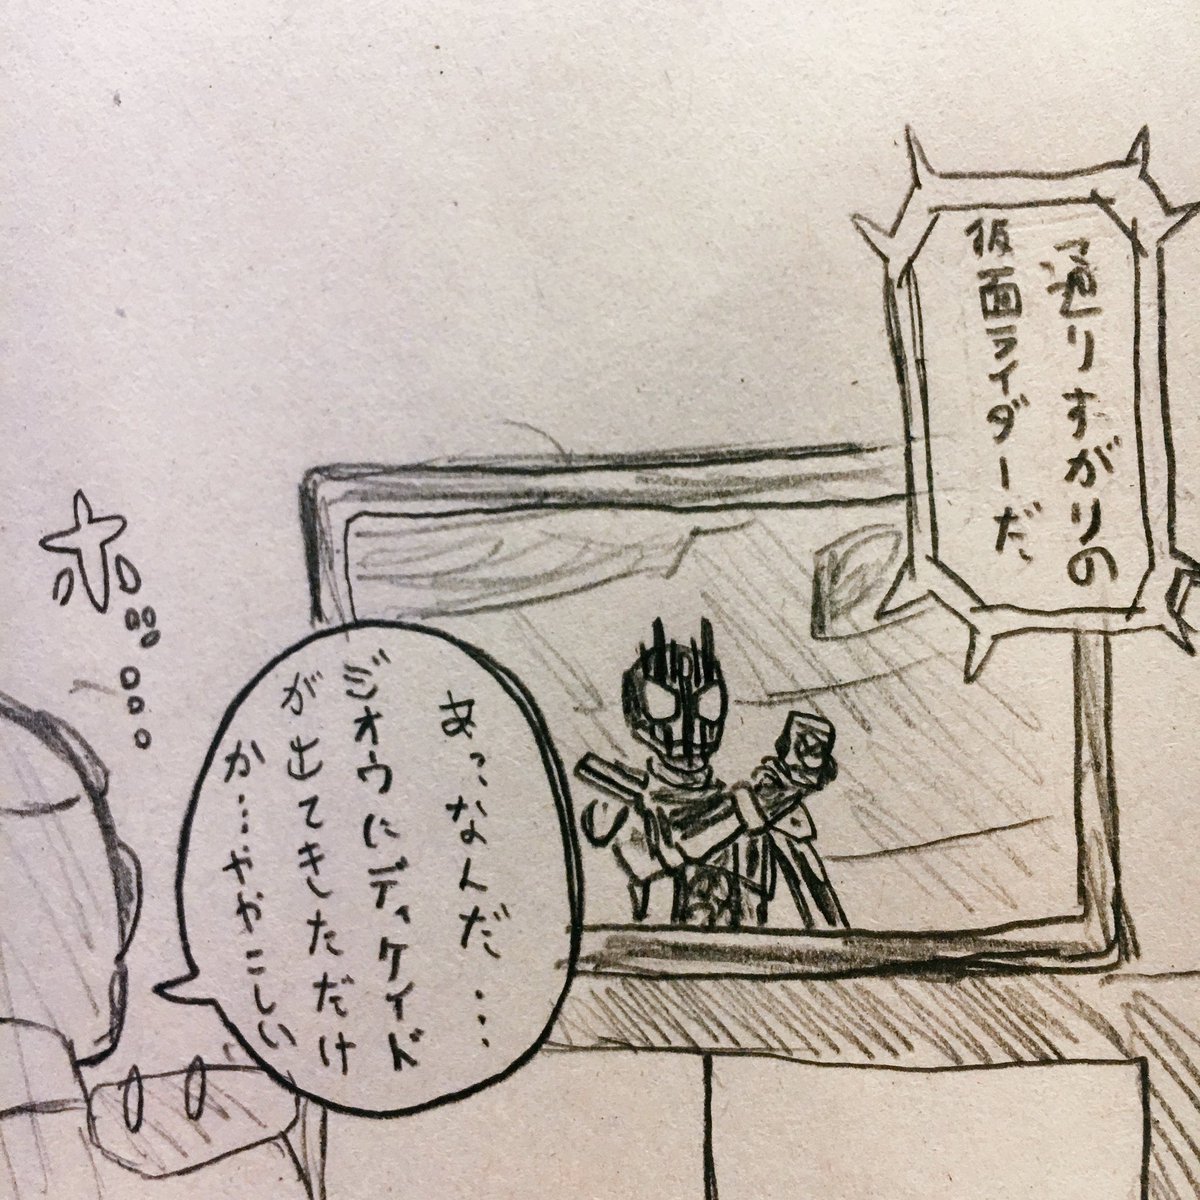 通りすがりの
仮面ライダーだ、
あっ、なんだ、…
ジオウにディケイド
が出てきただけ
か…ややこしい
ホ